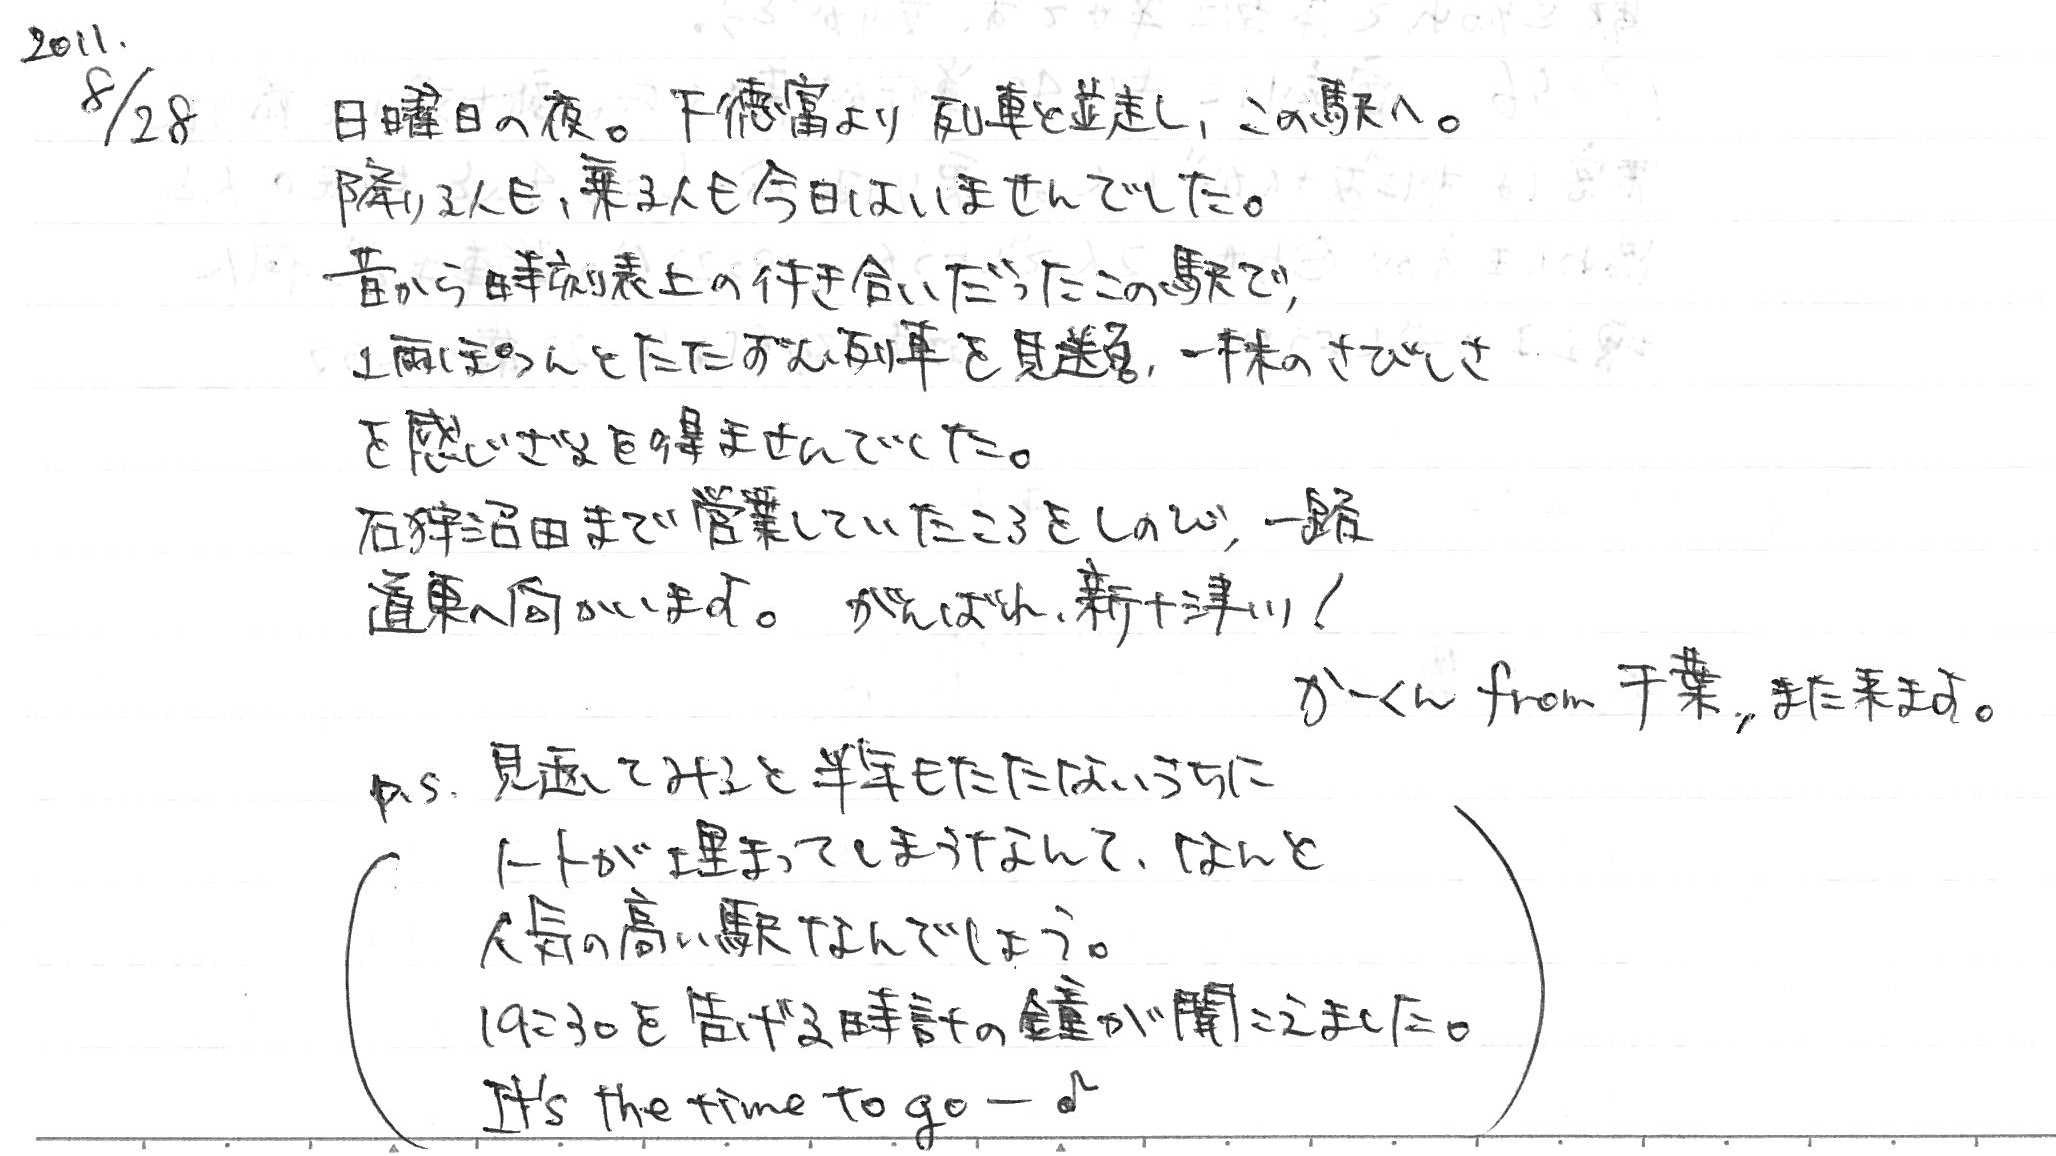 2011.
8/28
日曜日の夜。下徳富より列車と並走し、この駅へ。
降りる人も、乗る人も今日はいませんでした。
昔から時刻表上の付き合いだったこの駅で、
1両ぽつんとたたずむ列車を見送る、一抹のさびしさ
を感じざるを得ませんでした。
石狩沼田まで営業していたころをしのび、一路
道東へ向かいます。 がんばれ、新十津川!
かーくん from 千葉,, また来ます。
p.s. 見返してみると半年もたたないうちに
ノートが埋まってしまうなんて、なんと
人気の高い駅なんでしょう。
19:30を告げる時計の鐘が聞こえました。
It's the time to go ー ♪